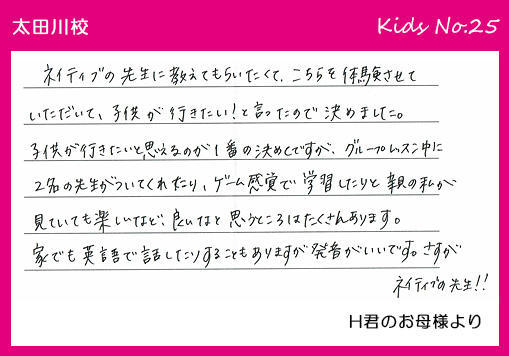 太田川校
Kids No.25
ネイティブの先生に教えてもらいたくて、こちらを体験させて
いただいて、子供が行きたい！と言ったので決めました。
子供が行きたいと思えるのが1番の決めてですが、グループレッスン中に
2名の先生がついてくれたり、ゲーム感覚で学習したりと親の私が
見ていても楽しいなど、良いなと思うところはたくさんあります。
家でも英語で話したりすることもありますが発音がいいです。さすが
ネイティブの先生!!
H君のお母様より